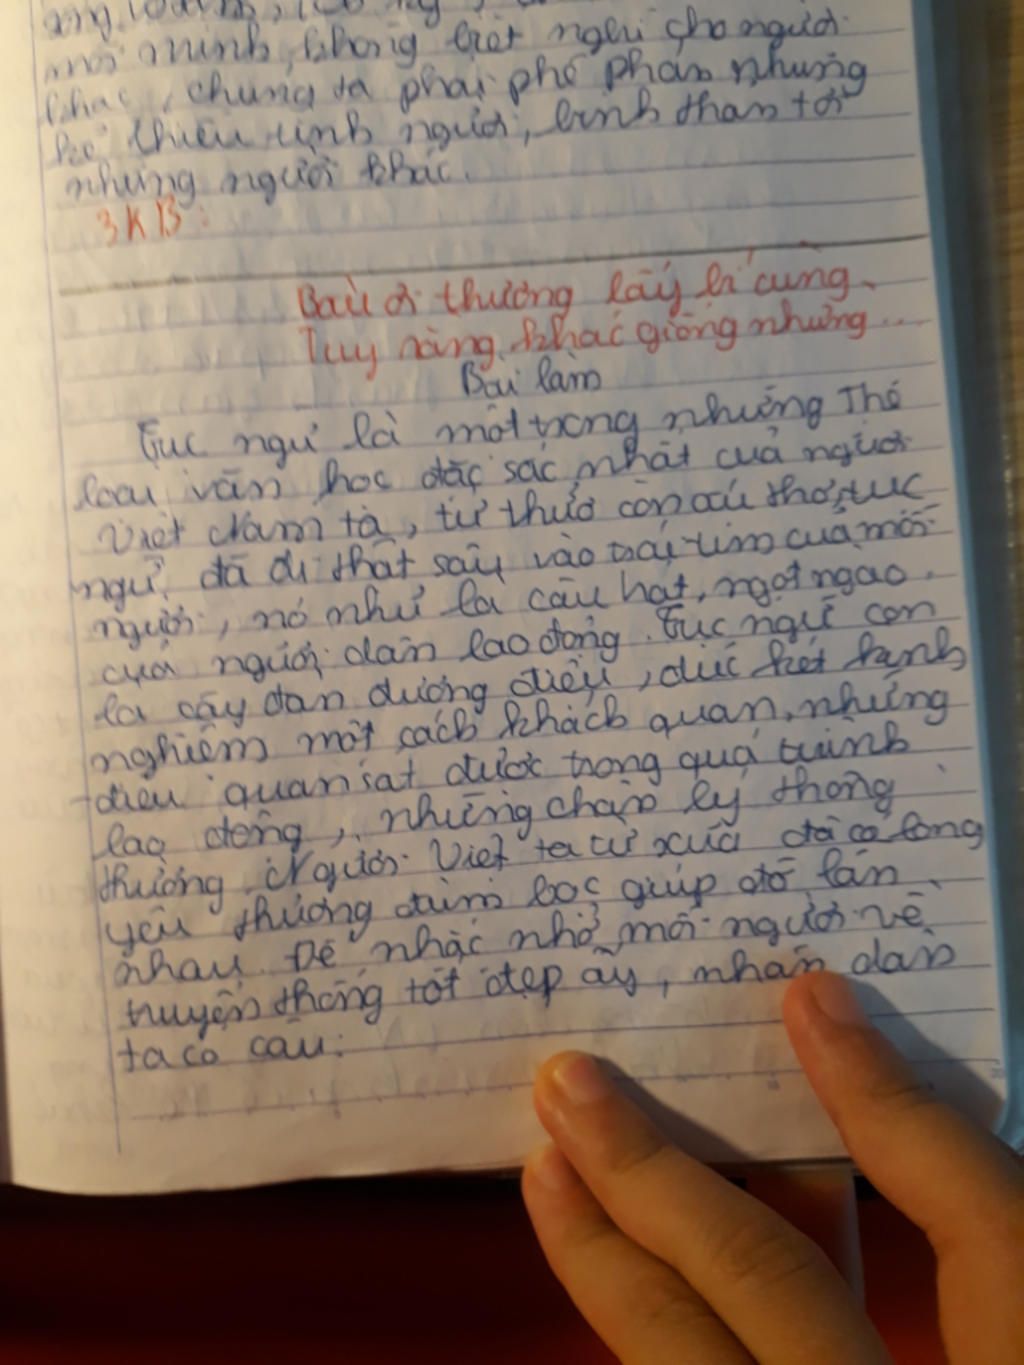 mỗi mình, không biết nghĩ cho người
khác, chúng ta phải phê phán những
kẻ thiếu tình người, bình thản tới
những người khác.
3KB:
Bầu ơi thương lấy bí cùng
Tuy rằng khác giống nhưng...
Bài làm
Tục ngữ là một trong những Thể
loại văn học đặc sắc nhất của người
Việt Nam ta, từ thuở còn ấu thơ, tục
ngữ đã đi thật sâu vào trái tim của mỗi
người, nó như là câu hát, ngọt ngào
của người dân lao động. Tục ngữ còn
là cây đàn dương điệu, đúc kết kinh
nghiệm một cách khách quan, những
điều quan sát được trong quá trình
lao động, những chân lý thông
thường. Người Việt ta từ xưa đã có lòng
yêu thương đùm bọc giúp đỡ lẫn
nhau. Để nhắc nhở mỗi người về
truyền thống tốt đẹp ấy, nhân dân
ta có câu: